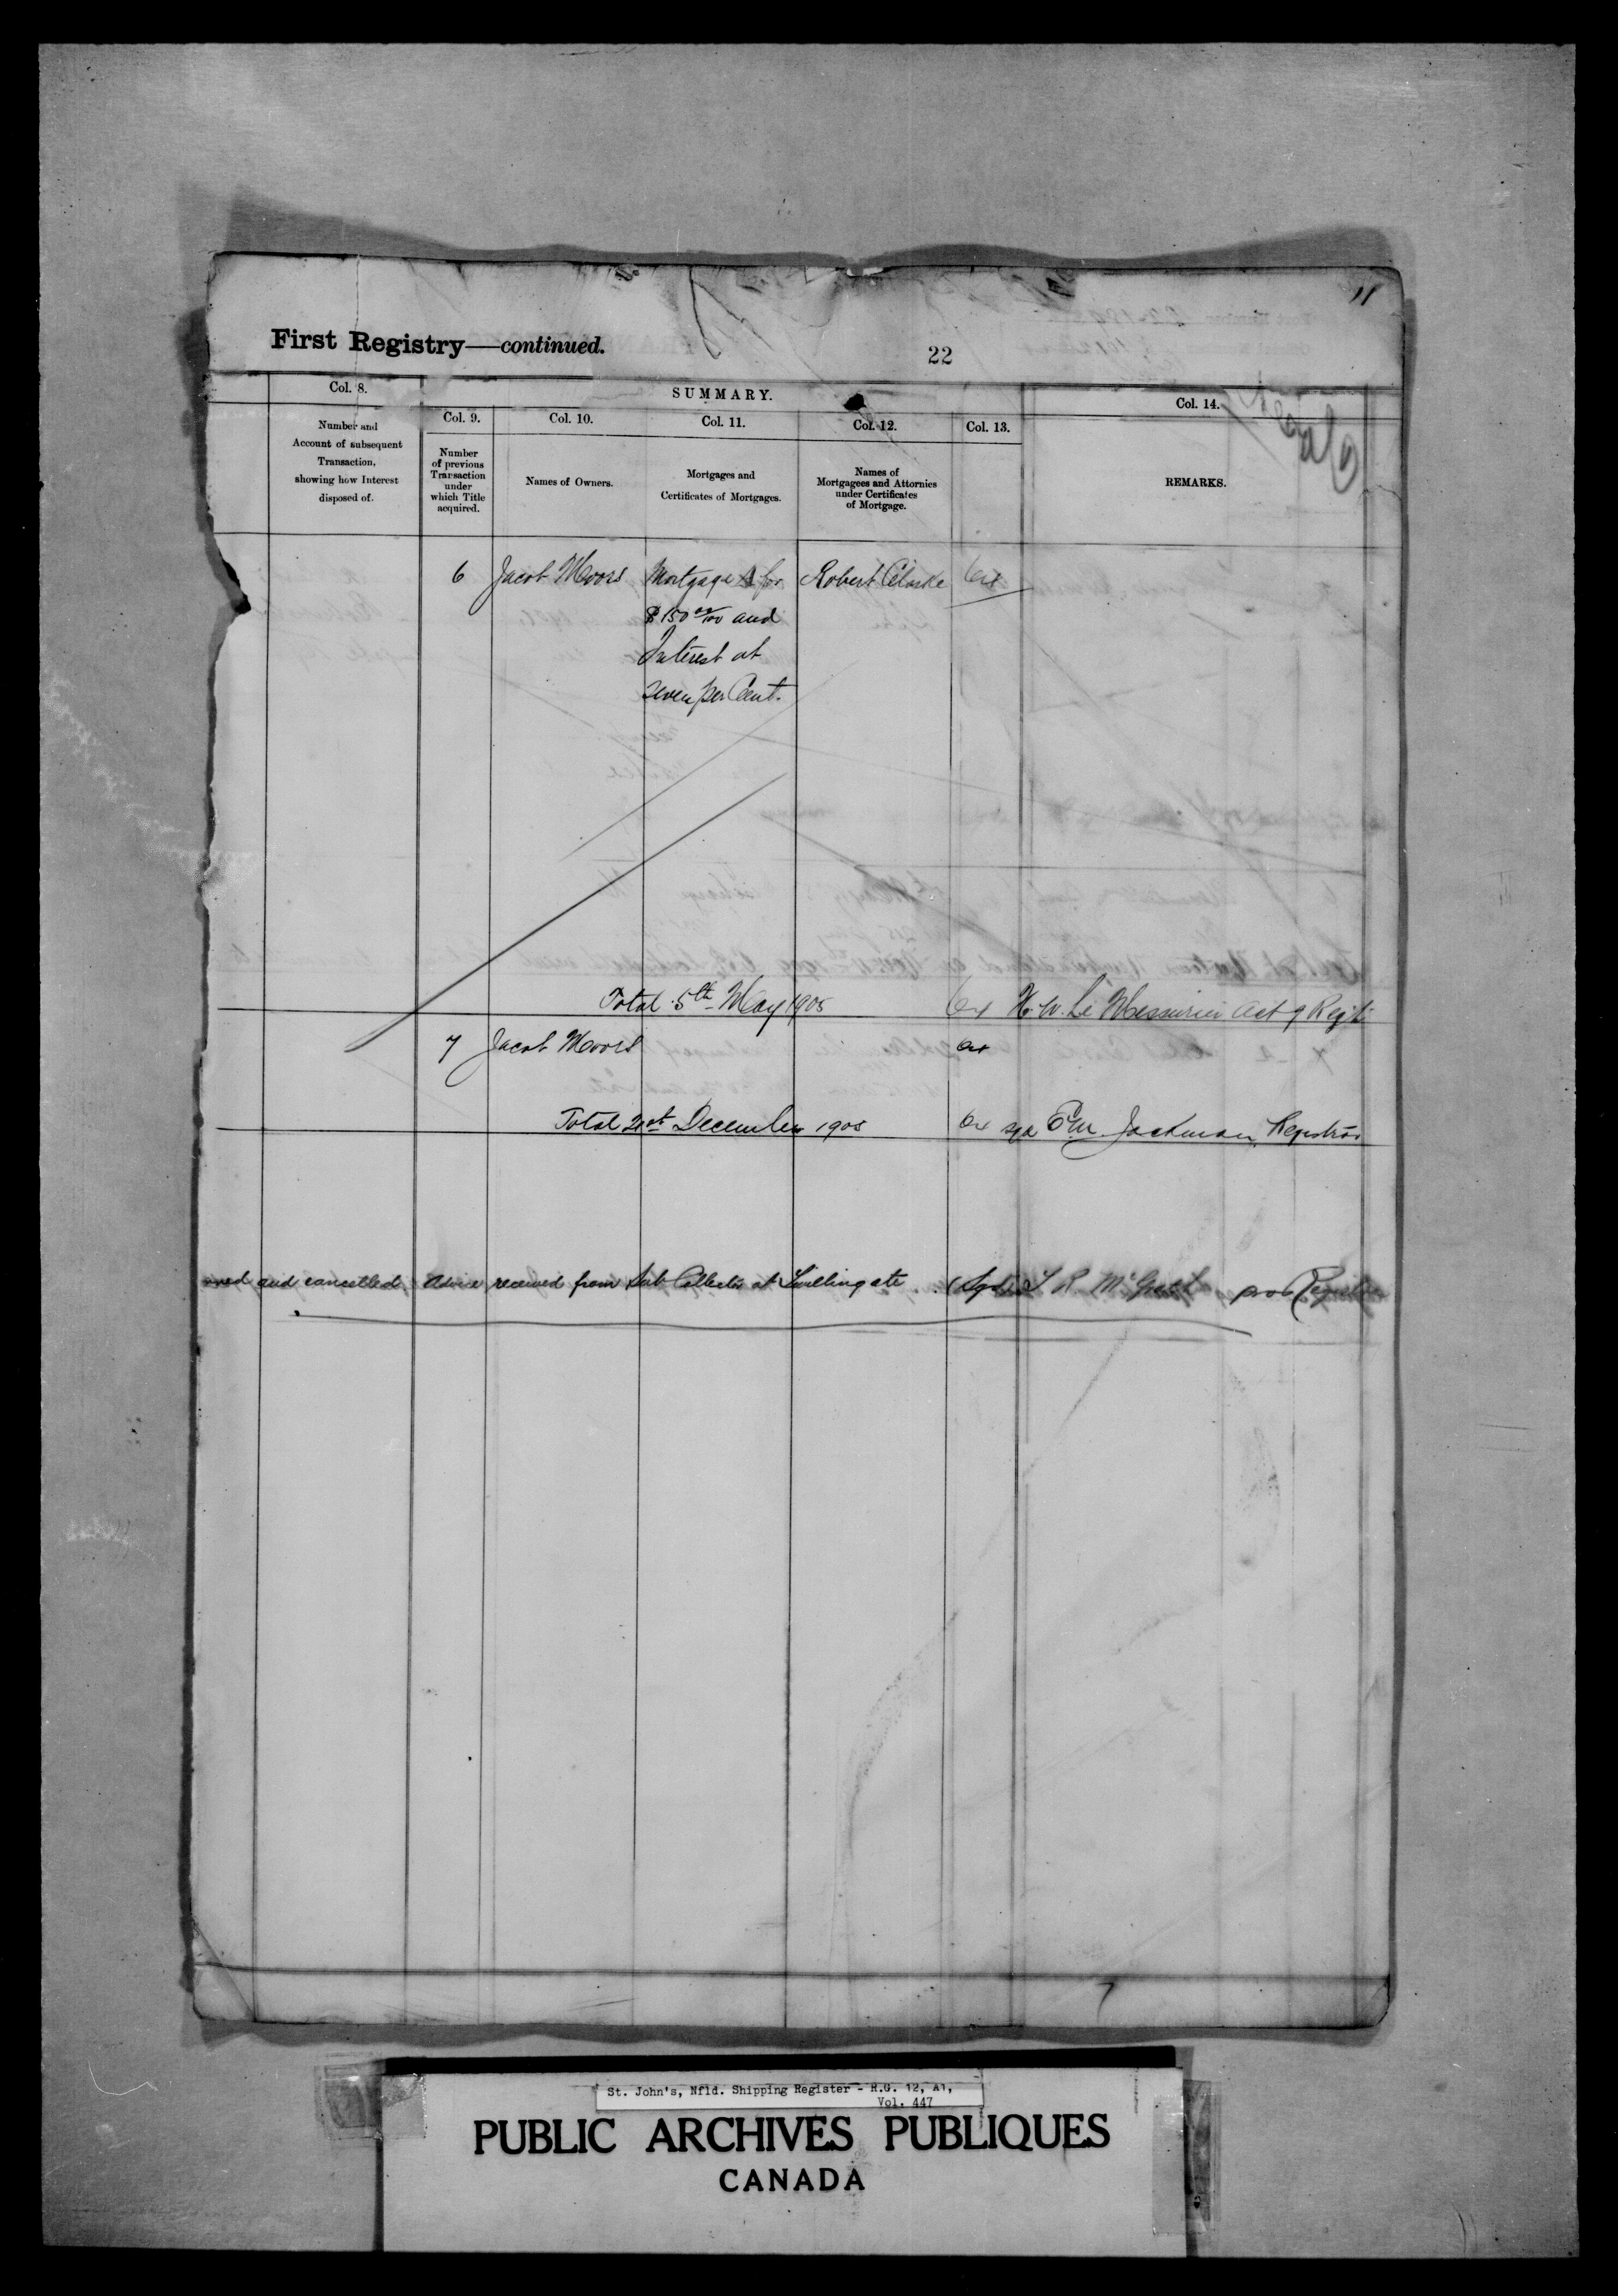 11
First Registry—continued.
22
Col. 8.
SUMMARY.
Col. 14.
Col. 9.
Col. 10.
Col. 11.
Col. 12.
Col. 13.
Number and
Account of subsequent
Transaction,
showing how Interest
disposed of.
Number
of previous
Transaction
under
which Title
acquired.
Names of Owners.
Mortgages and
Certificates of Mortgages.
Names of
Mortgagees and Attornies
under Certificates
of Mortgage.
REMARKS.
6 Jacob Moors Mortgage A for Robert Clarke 64
$150 00/100 and
Interest at
Seven per Cent.
Total 5th May 1905 64 H. W. Le Messurier Act g Regtr
7 Jacob Moors 64
Total 21st December 1905 64 sgd E M Jackman Registrar
and cancelled Advice received from Sub Collector at Twillingate (Sgd) L R McGrath pro Registrar
St. John's, Nfld. Shipping Register - R.G. 12, A1,
Vol. 447
PUBLIC ARCHIVES PUBLIQUES
CANADA